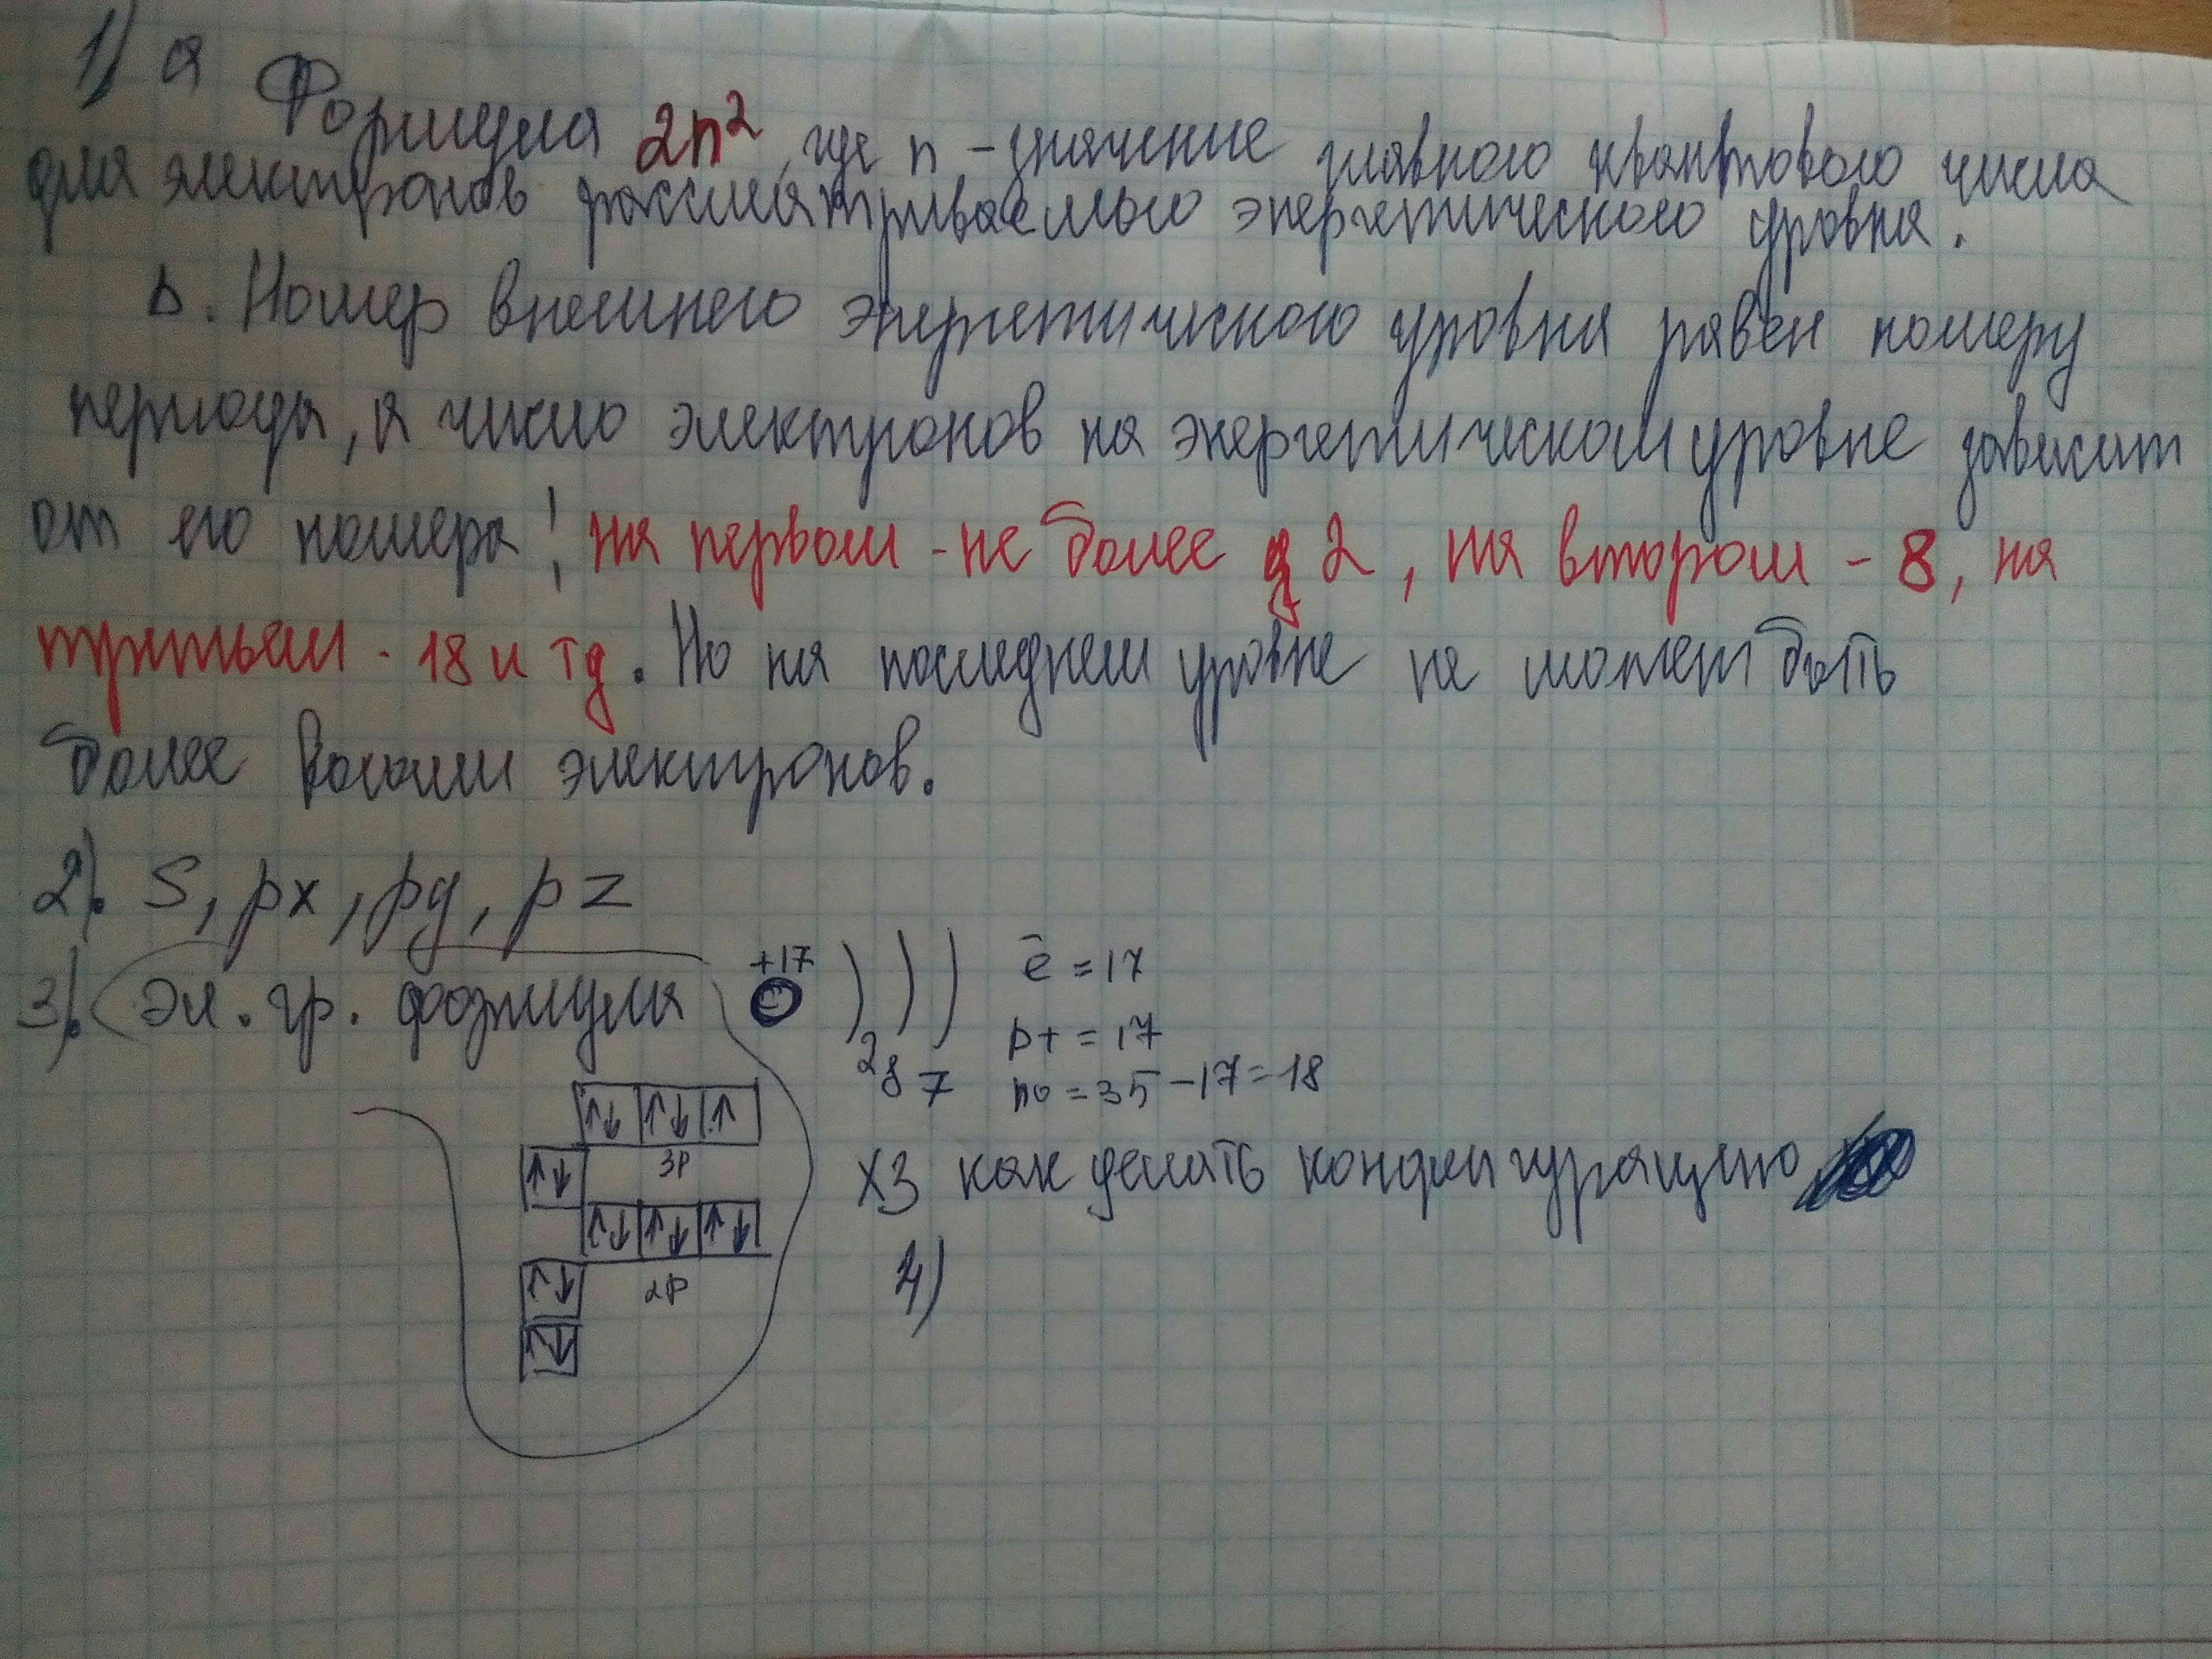 1) а
Формула 2n², где n - значение главного квантового числа
для электронов рассматриваемого энергетического уровня.
b. Номер внешнего энергетического уровня равен номеру
периода, а число электронов на энергетическом уровне зависит
от его номера! на первом - не более 2, на втором - 8, на
третьем - 18 и тд. Но на последнем уровне не может быть
более восьми электронов.
2). S, px, py, pz
3). эл. гр. формула +17 ) ) ) ē = 17
p+ = 17
2 8 7 n0 = 35 - 17 = 18
↑↓ ↑↓ ↑
3p
↑↓ ХЗ как делать конфигурацию
↑↓ ↑↓ ↑↓
↑↓ 2p 4)
↑↓